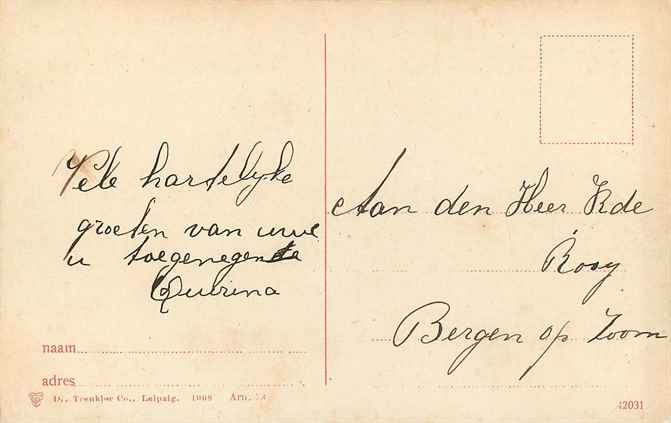 Vele hartelyke
groeten van uwe
u toegenegente
Quirina
Aan den Heer K de
Rooy
Bergen op Zoom
naam
adres
Dr. Trenkler Co., Leipzig. 1908 Arn.
42031